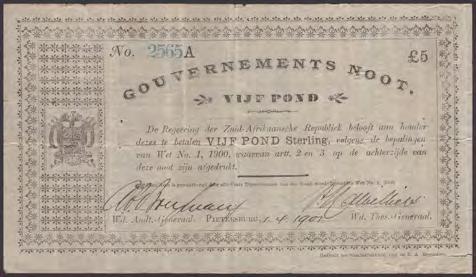 No. 2565A £5
GOUVERNEMENTS NOOT.
VIJF POND
De Regeering der Zuid-Afrikaansche Republiek belooft aan houder
dezes te betalen VIJF POND Sterling, volgens de bepalingen
van Wet No. 1, 1900, waarvan artt. 2 en 3 op de achterzijde van
deze noot zijn afgedrukt.
Wd. Audt.-Generaal. PIETERSBURG, 1-4 1901 Wd. Thes.-Generaal.